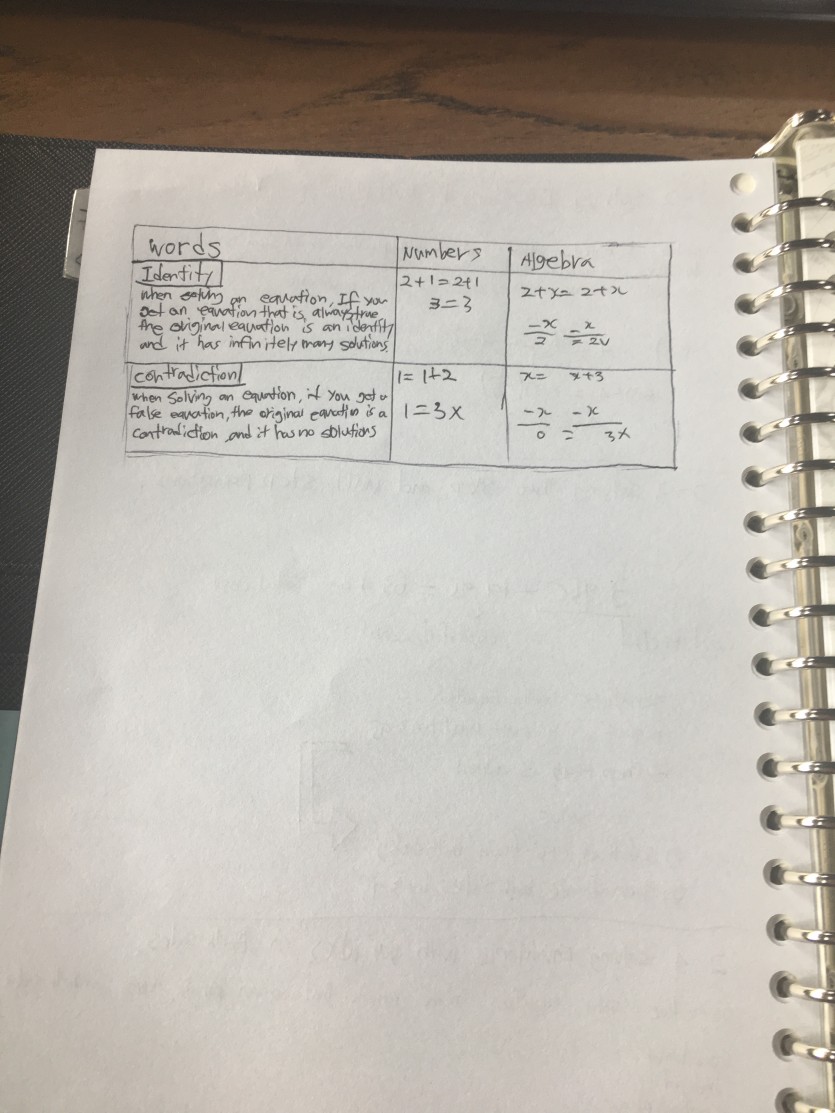 Words
Numbers
Algebra
Identity
When solving an equation, If you
get an equation that is always true
the original equation is an identity
and it has infinitely many solutions.
2+1=2+1
3=3
2+x=2+x
-x -x
2 = 2✓
contradiction
When Solving an equation, if you get a
false equation, the original equation is a
contradiction and it has no solutions
1=1+2
1=3x
x= x+3
-x -x
0 = 3x